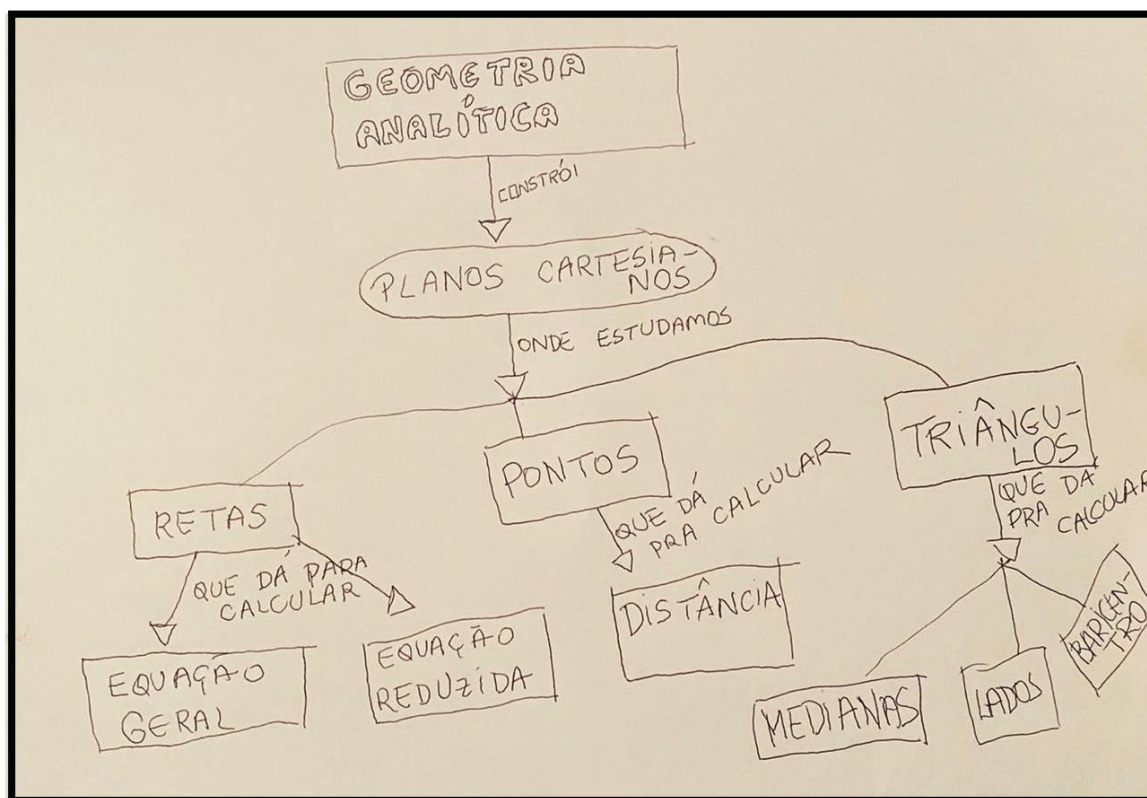 GEOMETRIA
ANALÍTICA
CONSTRÓI
PLANOS CARTESIA-
NOS
ONDE ESTUDAMOS
RETAS
QUE DÁ PARA
CALCULAR
EQUAÇÃO
GERAL
EQUAÇÃO
REDUZIDA
PONTOS
QUE DÁ
PRA CALCULAR
DISTÂNCIA
TRIÂNGU-
LOS
QUE DÁ
PRA CALCULAR
MEDIANAS
LADOS
BARICEN-
TRO